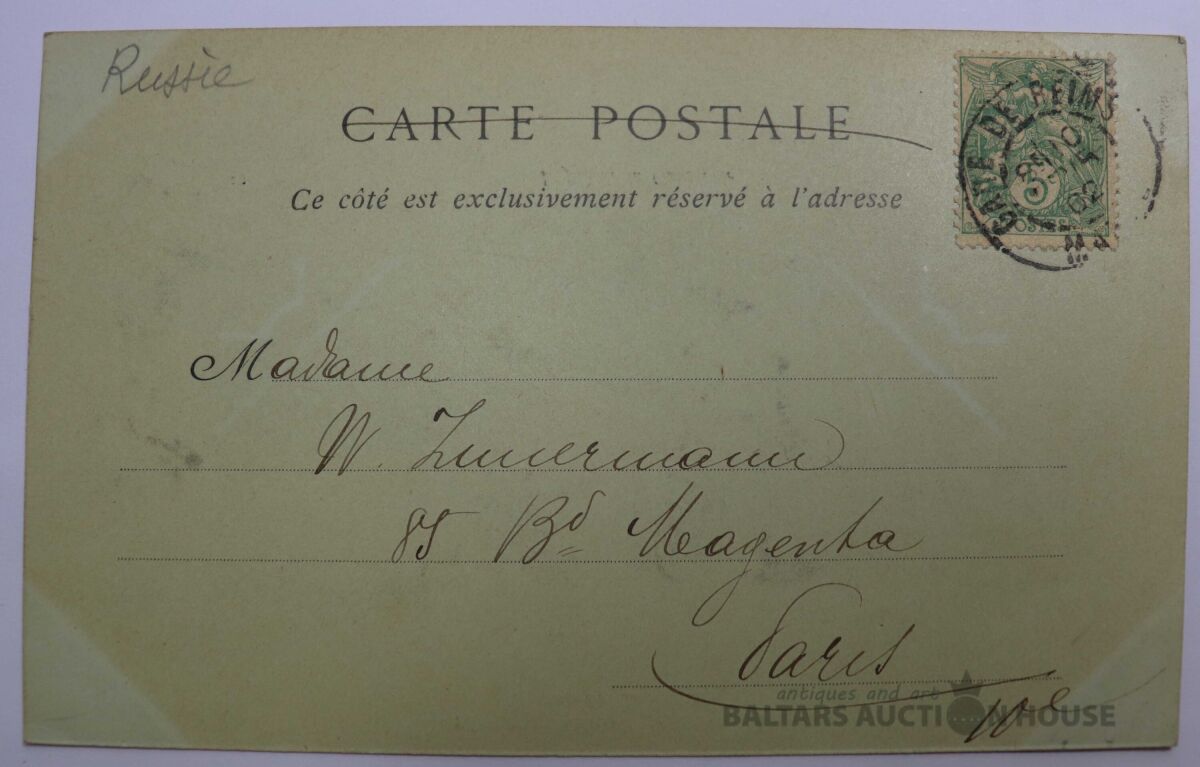 Russie
CARTE POSTALE
Ce côté est exclusivement réservé à l'adresse
GARE DE REIMS
5
POSTES
Madame
W. Zimmermann
85 Bd Magenta
Paris
10e
antiques and art
BALTARS AUCTION HOUSE